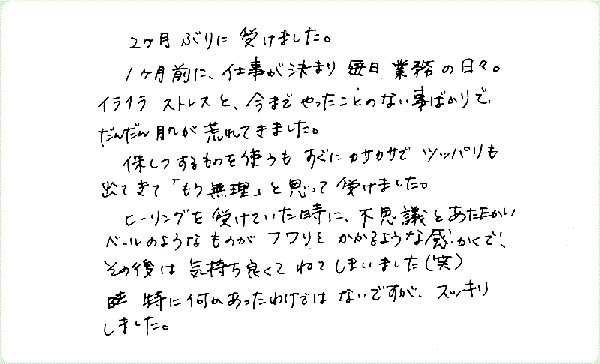 2ヶ月ぶりに受けました。
1ヶ月前に、仕事が決まり毎日業務の日々。
イライラストレスと、今までやったことのない事ばかりで、
だんだん肌が荒れてきました。
保しつするものを使うもすぐにカサカサでツッパリも
出てきて「もう無理」と思って受けました。
ヒーリングを受けていた時に、不思議とあたたかい
ベールのようなものがフワリとかかるような感かくで、
その後は気持ち良くてねてしまいました(笑)
特に何かあったわけではないですが、スッキリ
しました。